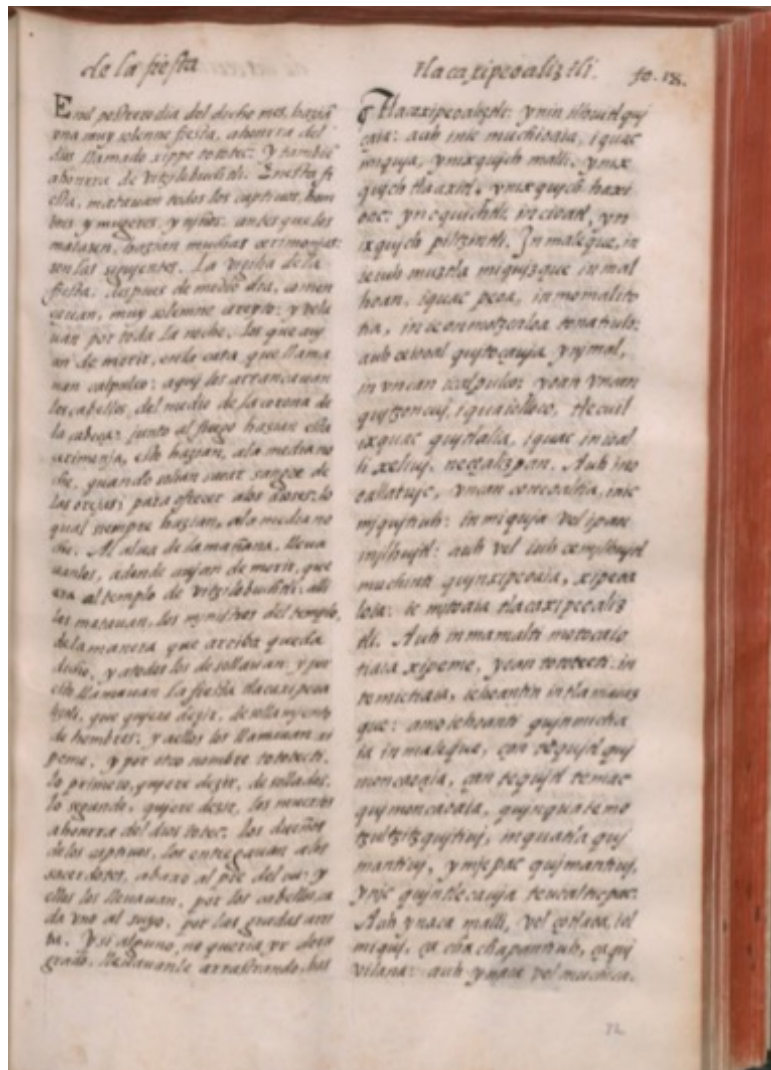 de la fiesta
tlacaxipeoaliztli. fo. 18.
Enel postrero dia del dicho mes, hazian
vna muy solenne fiesta, a honrra del
dios llamado xippe totoc: y tambie
a honrra de vitzilobuchtli. En esta fi
esta, matauan todos los captiuos, hom
bres y mugeres, y niños. antes que los
matasen, hazian muchas cerimonjas:
son las siguyentes. La vigilia de la
fiesta, despues de medio dia, comen
çauan, muy solemne areyto: y vela
uan por toda la noche, los que auj
an de morir, en la casa que llama
uan calpulco: aquj los arrancauan
los cabellos, del medio de la corona de
la cabeça: junto al fuego hazian esta
cerimonja, esto hazian, a la media no
che, quando solian sacar sangre de
las orejas, para ofrecer a los dioses: lo
qual siempre hazian, a la media no
che. Al alua de la mañana, lleua
uanlos, adonde aujan de morir, que
era al templo de vitzilobuchtli: alli
los matauan, los ministros del templo,
de la manera que arriba queda
dicho, y a todos los desollauan: y por
esto llamauan la fiesta tlacaxipeoa
liztli, que qujere dezir, desollamjento
de hombres: y a ellos los llamauan xi
peme, y por otro nombre tototecti.
lo primero, qujere dezir, desollados.
lo segundo, qujere dezir, los muertos
a honrra del dios totec. los dueños
de los captiuos, los entregauan a los
sacerdotes, abaxo al pie del cu: y
ellos los lleuauan, por los cabellos, ca
da vno al suyo, por las gradas arri
ba. Y si alguno, no queria yr de su
grado, lleuauanle arrastrando, has
Tlacaxipeoaliztli: ynin ilhuitl qui
çaia: auh inic muchioaia, iquac
miquja, yn ixqujch malli, yn ix
qujch tlaaxitl, yn ixqujch haxi
oac: yn oqujchtli, in cioatl, yn
ixqujch piltzintli. In maleque, in
ie iuh muztla miqujzque in mal
hoan, iquac peoa, in momalito
tia, in ie onmotzcaloa tonatiuh:
auh ceiooal qujtoçauja yn jmal,
in vncan icalpulco: yoan vncan
qujtzoncuj, iquaiolloco, tlecuil
ixquac qujtlalia, iquac in iooal
li xelivj, neçoalizpan. Auh in o
oallatvic, vncan concaoaltia, inic
mjqujtiuh: in miquja vel ipan
injlhujtl: auh vel iuh cemjlhujtl
muchinti qujnxipeoaia, xipeoa
loia: ic mjtoaia tlacaxipeoaliz
tli. Auh in mamalti motocaio
tiaia xipeme, yoan tototecti. in
temictiaia, iehoantin in tlamacaz
que: amo iehoanti qujnmictia
ia in maleque, çan tequjtl quj
moncaoaia, çan tequjtl temac
qujmoncaoaia, qujnquatemo
tzultzitzqujtivi, inquatla quj
mantiuj, ynjc pac qujmantiuj,
ynjc qujntlecauja teucalticpac.
Auh yn aca malli, vel çotlaoa, iol
miquj, ça cha chapantiuh, ça quj
vilana: auh yn aca vel muchica